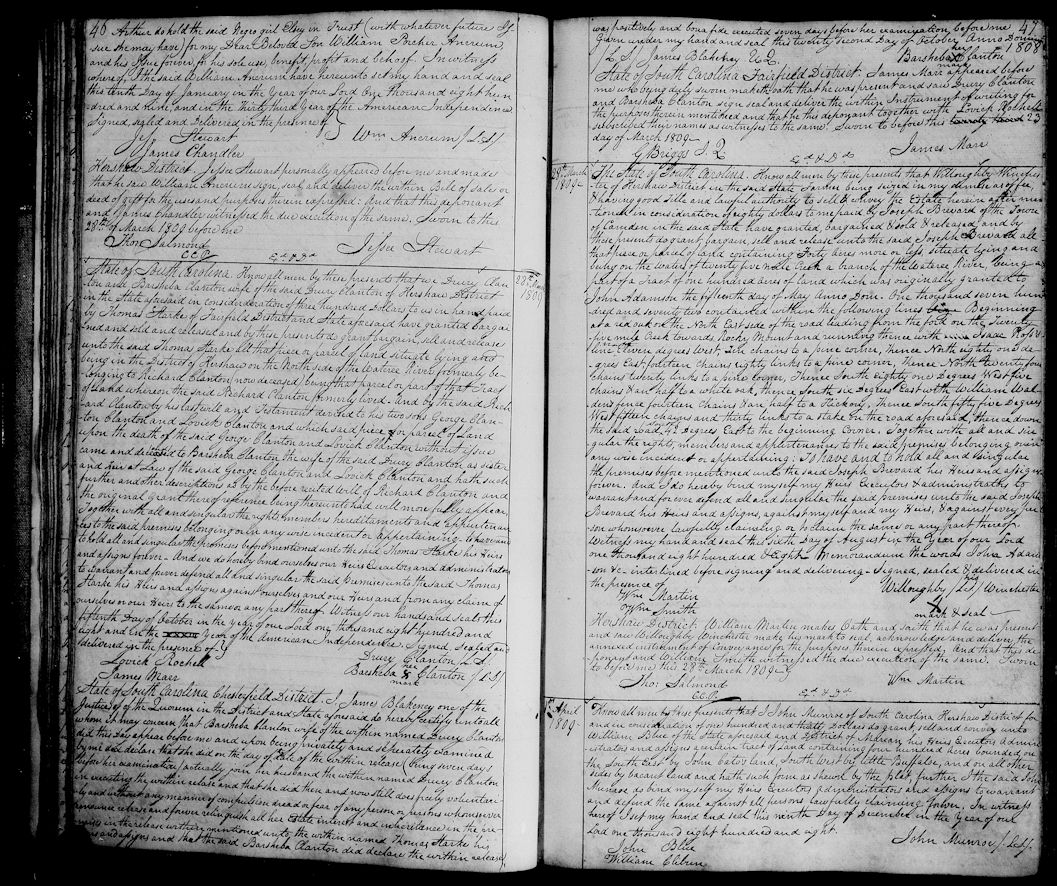 46 Arthur do hold the said Negro girl Elsey in Trust (with whatever future Is-
sue she may have) for my Dear Beloved Son William Porcher Ancrum,
and his Issue forever, for his sole use, benefit, profit and behoof. In witness
whereof, I the said William Ancrum have hereunto set my hand and seal
this tenth Day of January in the Year of our Lord One thousand eight hun-
dred and nine, and in the Thirty third Year of the American Independence
Signed, sealed and Delivered in the presence of
Jesse Stewart Wm Ancrum [L.S.]
James Chandler
Kershaw District. Jesse Stewart personally appeared before me and made
that he saw William Ancrum sign, seal and deliver the within Bill of Sale or
deed of gift for the uses and purposes therein expressed: And that this deponant
and James Chandler witnessed the due execution of the same. Sworn to this
28th of March 1809 before me
Thos Salmond Jesse Stewart
C.C.P. Exd & Dd
State of South Carolina. Know all men by these presents that we Drury Clan-
ton and Barsheba Clanton wife of the said Drury Clanton of Kershaw District
in the State aforesaid in consideration of three hundred Dollars to us in hand paid
by Thomas Starke of Fairfield District and State aforesaid have granted bargai-
ned and sold and released and by these presents do grant bargain, sell and release
unto the said Thomas Starke all that piece or parcel of land situate lying and
being in the District of Kershaw on the North side of the Wateree River formerly be-
longing to Richard Clanton (now deceased) being that parcel or part of that Tract
of Land whereon the said Richard Clanton formerly lived. And by the said Rich-
ard Clanton by his last will and Testament devised to his two sons George Clan-
ton Clanton and Lovick Clanton and which said piece or parcel of Land
upon the death of the said George Clanton and Lovick Clanton without issue
came and descended to Barsheba Clanton the wife of the said Drury Clanton as sister
and Heir at Law of the said George Clanton and Lovick Clanton and hath such
further and other descriptions as by the before recited Will of Richard Clanton and
The original Grant thereof reference being thereunto had will more fully appear,
Together with all and singular the rights, members hereditaments and appurtenan-
ces to the said premises belonging or in any wise incident or appertaining. to have and
to hold all and singular the premises before mentioned unto the said Thomas Starke his Heirs
and assigns forever - And we do hereby bind ourselves our Heirs Executors and administrators
to warrant and forever defend all and singular the said premises unto the said Thomas
Starke his Heirs and assigns against ourselves and our Heirs and from any claim of
ourselves or our Heirs to the same or any part thereof. Witness our hands and seals this
fifteenth Day of October in the year of our Lord one thousand eight hundred and
eight and in the Year of the American Independence. Signed, Sealed and
delivered in the presence of
Lovick Rochell Drury Clanton L.S.
James Marr Barsheba her X mark Clanton [L.S.]
State of South Carolina Chesterfield District. I, James Blakeney one of the
Justices of the Quorum in the District and State aforesaid do hereby certify unto all
whom it may concern that Barsheba Clanton wife of the within named Drury Clanton
did this Day appear before me and upon being privately and seperately examined
by me did declare that she did on the day of date of the within release (being seven days
before her examination) actually join her husband the within named Drury Clanton
in executing the within release and that she did then and now still does freely voluntari-
ly and without any manner of compulsion dread or fear of any person or persons whomsoever
renounce release and forever relinquish all her Estate interest and inheritance in the pre-
mises in the release within mentioned unto the within named Thomas Starke his
Heirs and assigns and that the said Barsheba Clanton did declare the within release
22nd March
1809
47
was positively and bona fide executed seven days before her examination, before me
Given under my hand and seal this twenty second Day of October Anno Domini 1808
[L.S.] James Blakeney Q.U. Barsheba her X mark Clanton
State of South Carolina Fairfield District. James Marr appeared before
me who being duly sworn maketh oath that he was present and saw Drury Clanton
and Barsheba Clanton sign seal and deliver the within Instrument of writing for
the purposes therein mentioned and that he this deponant together with Lovick Rochell
subscribed their names as witnesses to the same. Sworn to before this twenty third 23
day of March 1809
G Briggs J.Q. Exd & Dd James Marr
28th March
1809
The State of South Carolina. Know all men by these presents that Willoughby Winches-
ter of Kershaw District in the said State Farmer being seized in my demesne as of fee,
& having good title and lawful authority to sell & convey the Estate herein after men-
tioned in consideration of eighty dollars to me paid by Joseph Brevard of the Town
of Camden in the said State have granted, bargained & sold & released, and by
these presents do grant, bargain, sell and release unto the said Joseph Brevard all
that piece or parcel of land containing Forty acres more or less, situate lying and
being on the waters of twenty five mile Creek a branch of the Wateree River, being a
part of a Tract of one hundred acres of land which was originally granted to
John Adamson the fifteenth day of May Anno Dom. One thousand seven hun-
dred and seventy two contained within the following lines Beginning
at a red oak on the North East side of the road leading from the ford on the Twenty
five mile Creek towards Rocky Mount and running thence with Isaac Ross's
line Eleven degrees West, Ten chains to a pine corner, thence North eighty one de-
grees East, fourteen chains eighty links to a pine corner, thence North & twenty four
chains twenty links to a pine corner, Thence South eighty one Degrees West five
chains & an half to a white oak, thence South six Degrees East with William Wal-
dens line fourteen Chains & an half to a Hickory, Thence South fifty five Degrees
West fifteen chains and thirty links to a stake on the road aforesaid, thence down
the said road, 42 degrees East to the beginning Corner. Together with all and sin-
gular the rights, members and appurtenances to the said premises belonging or in
any wise incident or appertaining: To have and to hold all and singular
the premises before mentioned unto the said Joseph Brevard his Heirs and assigns
forever. And I do hereby bind myself my Heirs Executors & administrators to
warrant and forever defend all and singular the said premises unto the said Joseph
Brevard his Heirs and assigns, against myself and my Heirs, & against every per-
son whomsoever lawfully claiming or to claim the same or any part thereof.
Witness my hand and seal the Sixth Day of August in the Year of our Lord
one thousand eight hundred & Eight - Memorandum the words John Adam-
son &c - interlined before signing and delivering - Signed, sealed & delivered in
the presence of
Wm Martin Willoughby his X mark & seal [L.S.] Winchester
Wm Smith
Kershaw District. William Martin makes Oath and saith that he was present
and saw Willoughby Winchester make his mark to seal, acknowledge and deliver, the
annexed instrument of Conveyance for the purposes therein expressed, and that this de-
ponant and William Smith witnessed the due execution of the same. Sworn
to before me this 28th March 1809
Tho: Salmond Wm Martin
C.C.P. Exd & Dd
April
1809
Know all men by these presents that I John Munroe of South Carolina Kershaw District for
and in consideration of one hundred and Dollars do grant, sell and convey unto
William Blue of the State aforesaid and District of Marion, his Heirs Executors Admin-
istrators and assigns a certain tract of Land containing four hundred acres bounded on
the South East by John Cato's land, South West by little Buffaloe, and on all other
sides by vacant land and hath such form as shewn by the plat, further I the said John
Munroe do bind my self my Heirs Executors administrators and assigns to warrant
and defend the same against all persons lawfully claiming forever. In witness
hereof I set my hand and seal this ninth Day of December in the Year of our
Lord one thousand eight hundred and eight.
John Blue John Munroe [L.S.]
William Cleburn